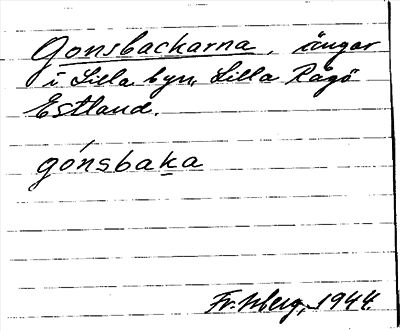 Gonsbackarna, ängar
i Lilla byn, Lilla Rågö
Estland.
gónsbaka
1944.